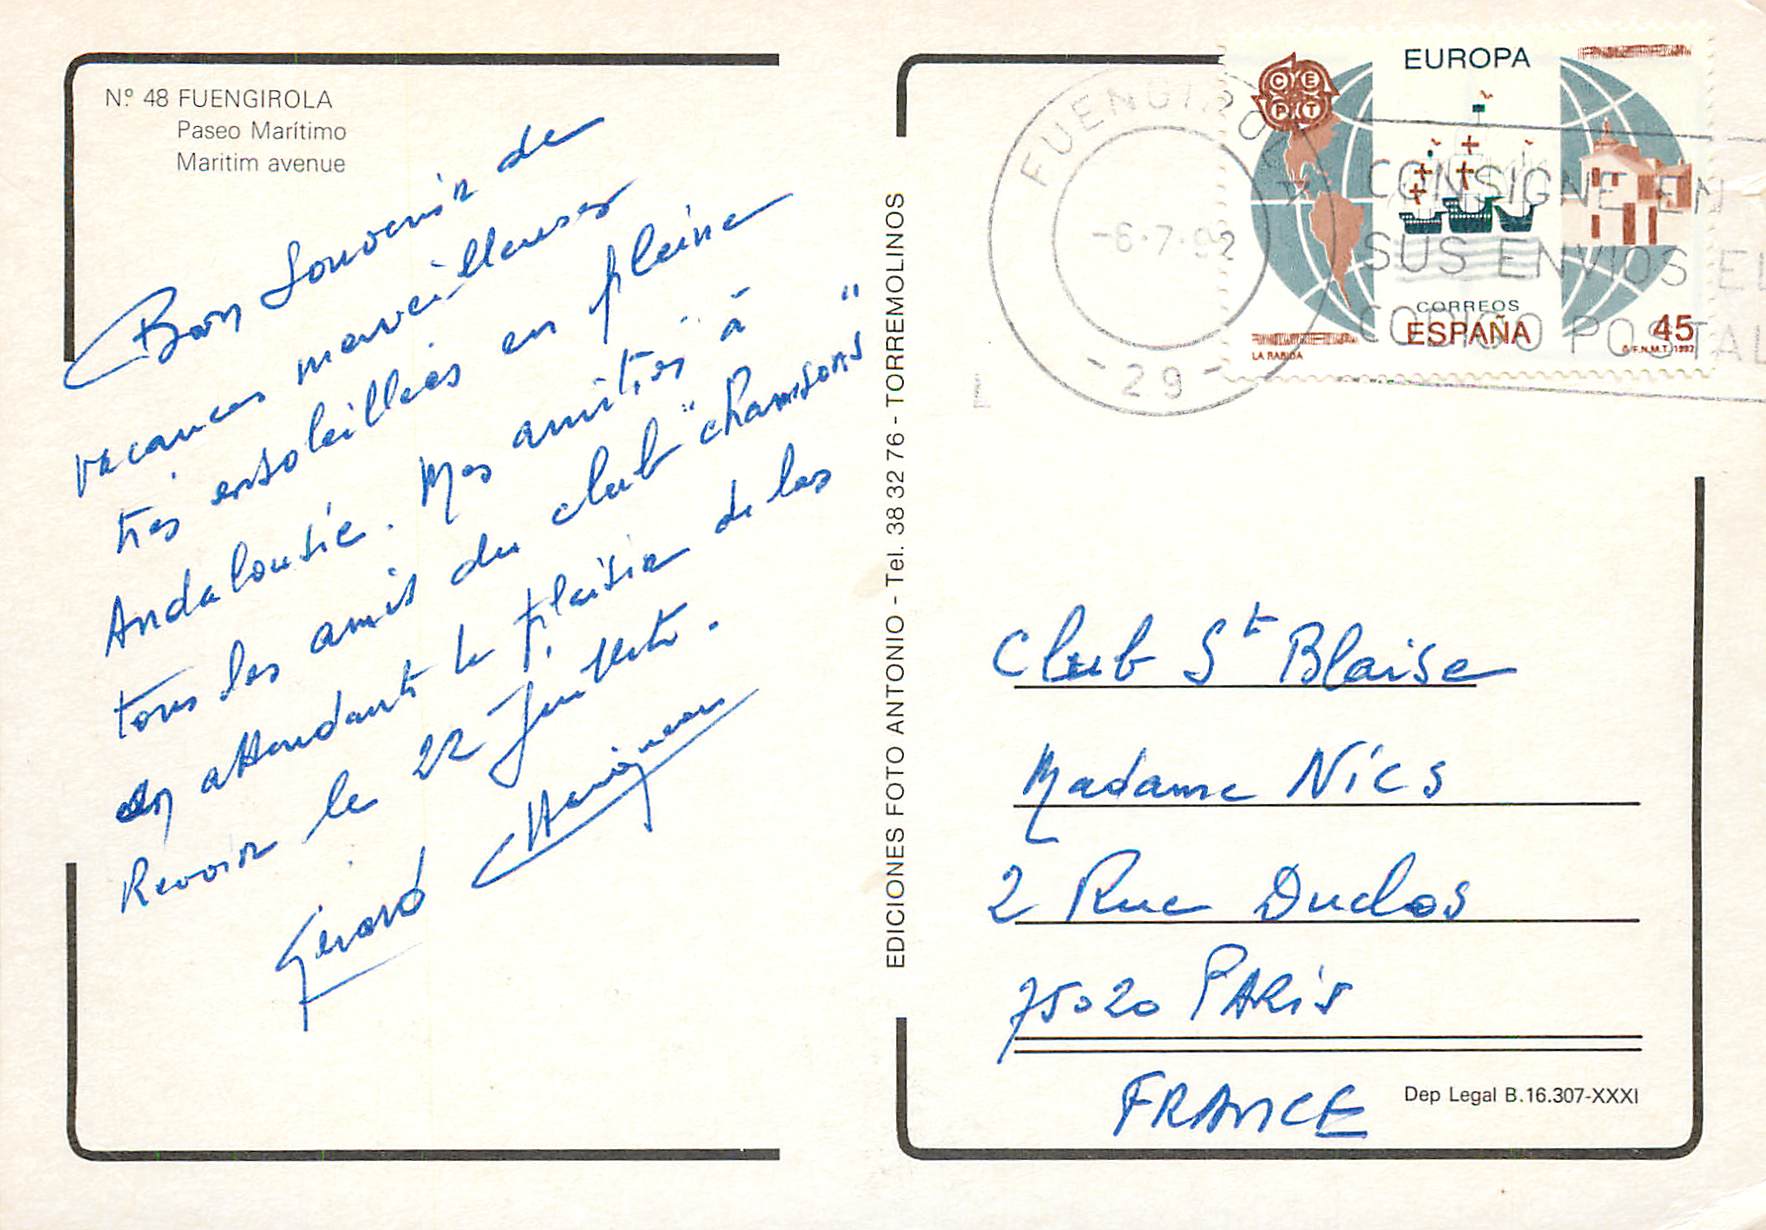 Nº 48 FUENGIROLA
Paseo Marítimo
Maritim avenue
Bon Souvenir de
vacances merveilleuses
très ensoleillées en pleine
Andalousie. Mes amitiés à
tous les amis du club "chansons"
en attendant le plaisir de les
Revoir le 22 Juillet.
Gérard
EDICIONES FOTO ANTONIO - Tel. 38 32 76 - TORREMOLINOS
FUENGIROLA
-6·7·92
-29-
CONSIGNE EN
SUS ENVIOS EL
CODIGO POSTAL
EUROPA
CEPT
CORREOS
ESPAÑA
45
LA RABIDA
F.N.M.T. 1992
Club St Blaise
Madame Nics
2 Rue Duclos
75020 PARIS
FRANCE
Dep Legal B.16.307-XXXI